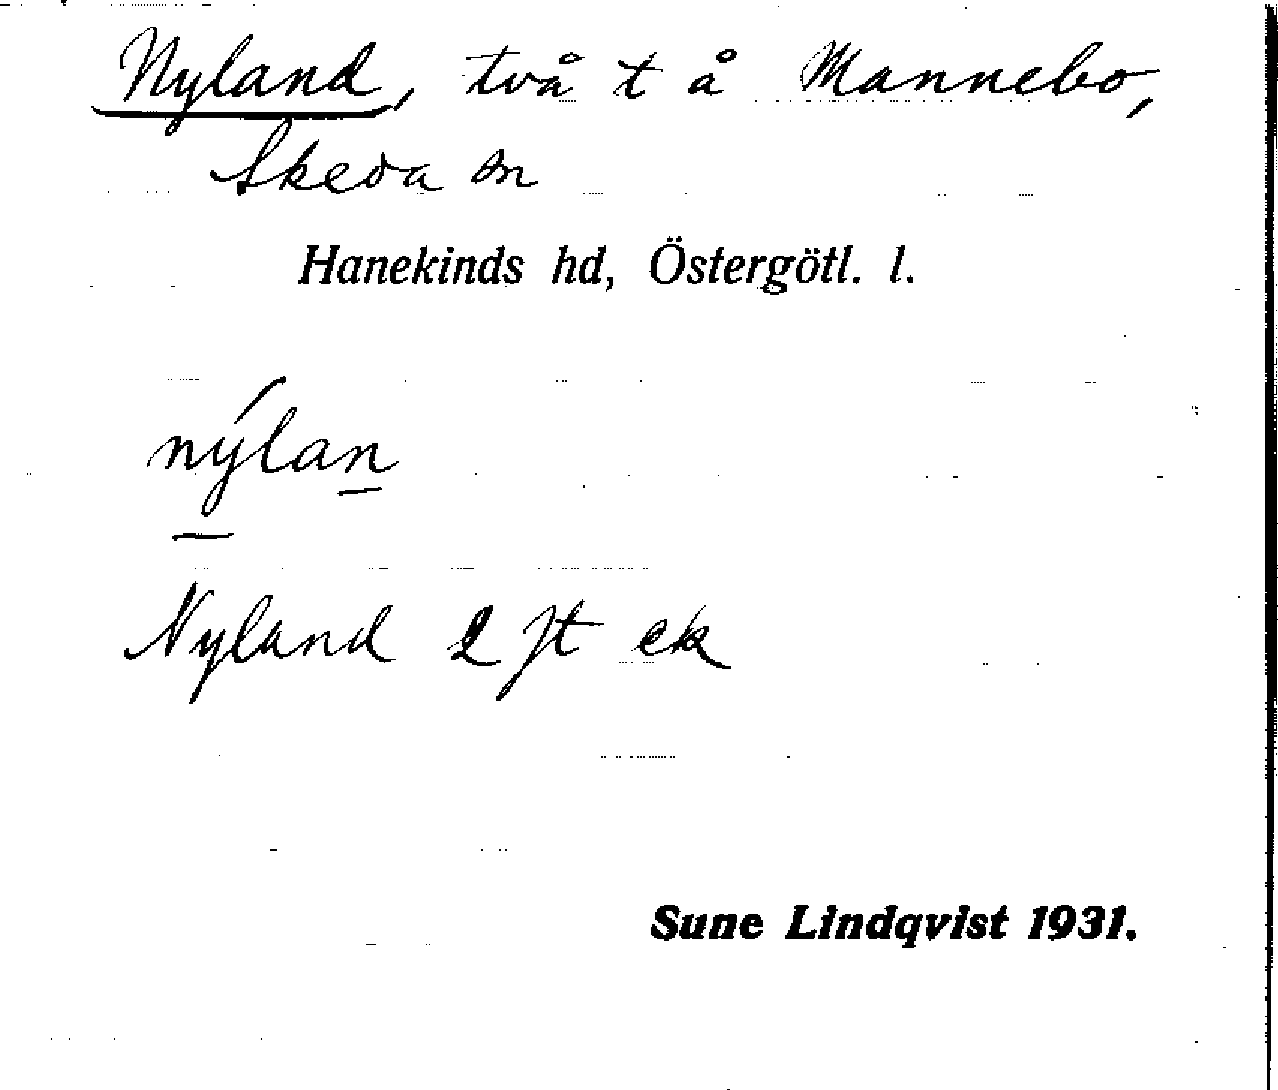 Nyland, två t å Mannebo,
Skeda sn
Hanekinds hd, Östergötl. l.
nýlan
Nyland 2 ft ek
Sune Lindqvist 1931.